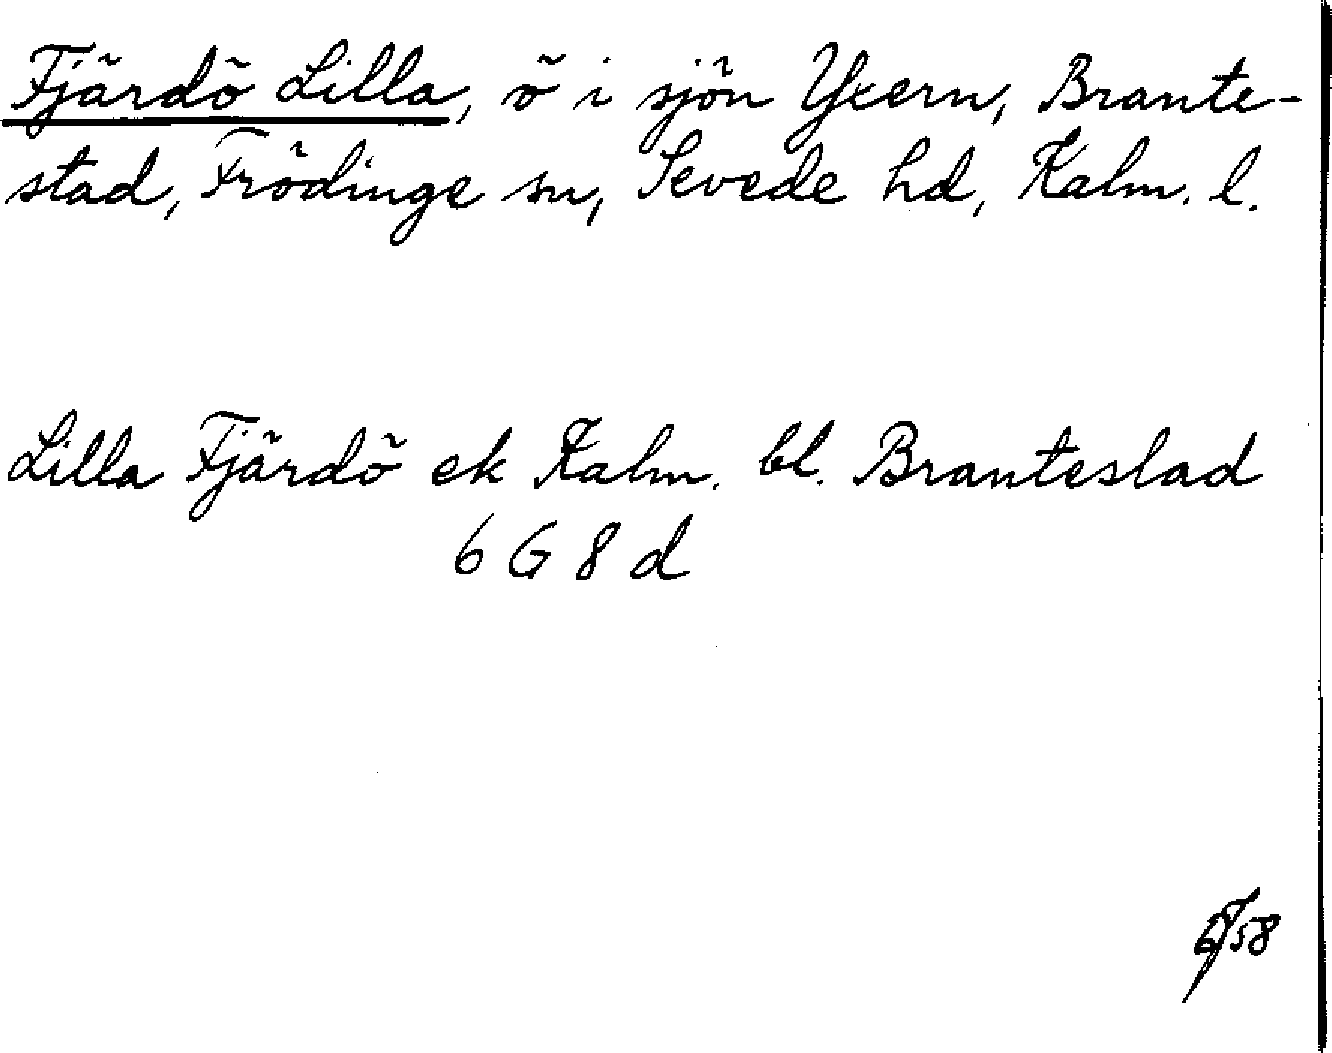 Fjärdö Lilla, ö i sjön Yxern, Brante-
stad, Frödinge sn, Sevede hd, Kalm. l.
Lilla Fjärdö ek Kalm. bl. Brantestad
6 G 8 d